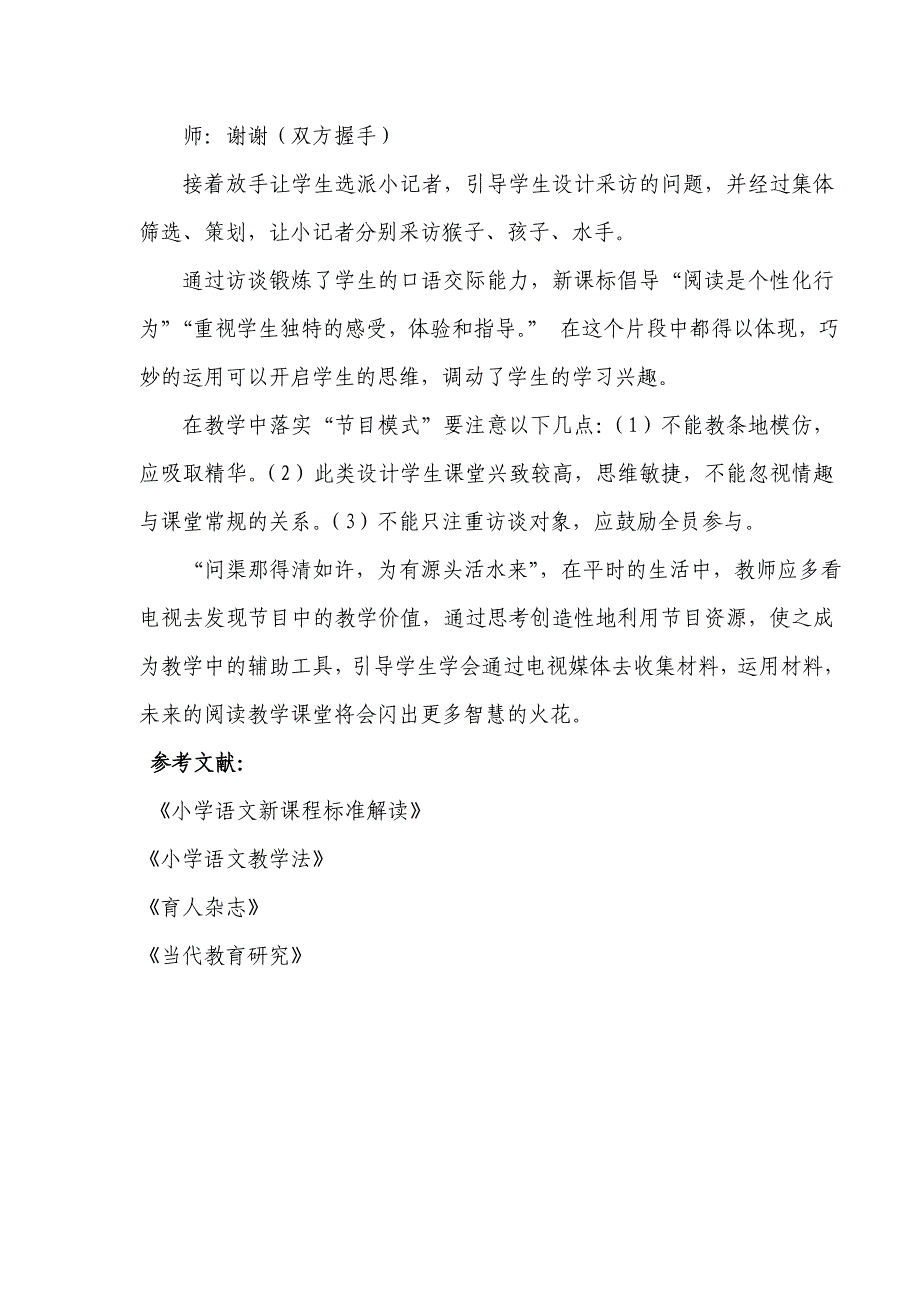 师：谢谢（双方握手）
接着放手让学生选派小记者，引导学生设计采访的问题，并经过集体
筛选、策划，让小记者分别采访猴子、孩子、水手。
通过访谈锻炼了学生的口语交际能力，新课标倡导“阅读是个性化行
为”“重视学生独特的感受，体验和指导。” 在这个片段中都得以体现，巧
妙的运用可以开启学生的思维，调动了学生的学习兴趣。
在教学中落实“节目模式”要注意以下几点：（1）不能教条地模仿，
应吸取精华。（2）此类设计学生课堂兴致较高，思维敏捷，不能忽视情趣
与课堂常规的关系。（3）不能只注重访谈对象，应鼓励全员参与。
“问渠那得清如许，为有源头活水来”，在平时的生活中，教师应多看
电视去发现节目中的教学价值，通过思考创造性地利用节目资源，使之成
为教学中的辅助工具，引导学生学会通过电视媒体去收集材料，运用材料，
未来的阅读教学课堂将会闪出更多智慧的火花。
参考文献：
《小学语文新课程标准解读》
《小学语文教学法》
《育人杂志》
《当代教育研究》